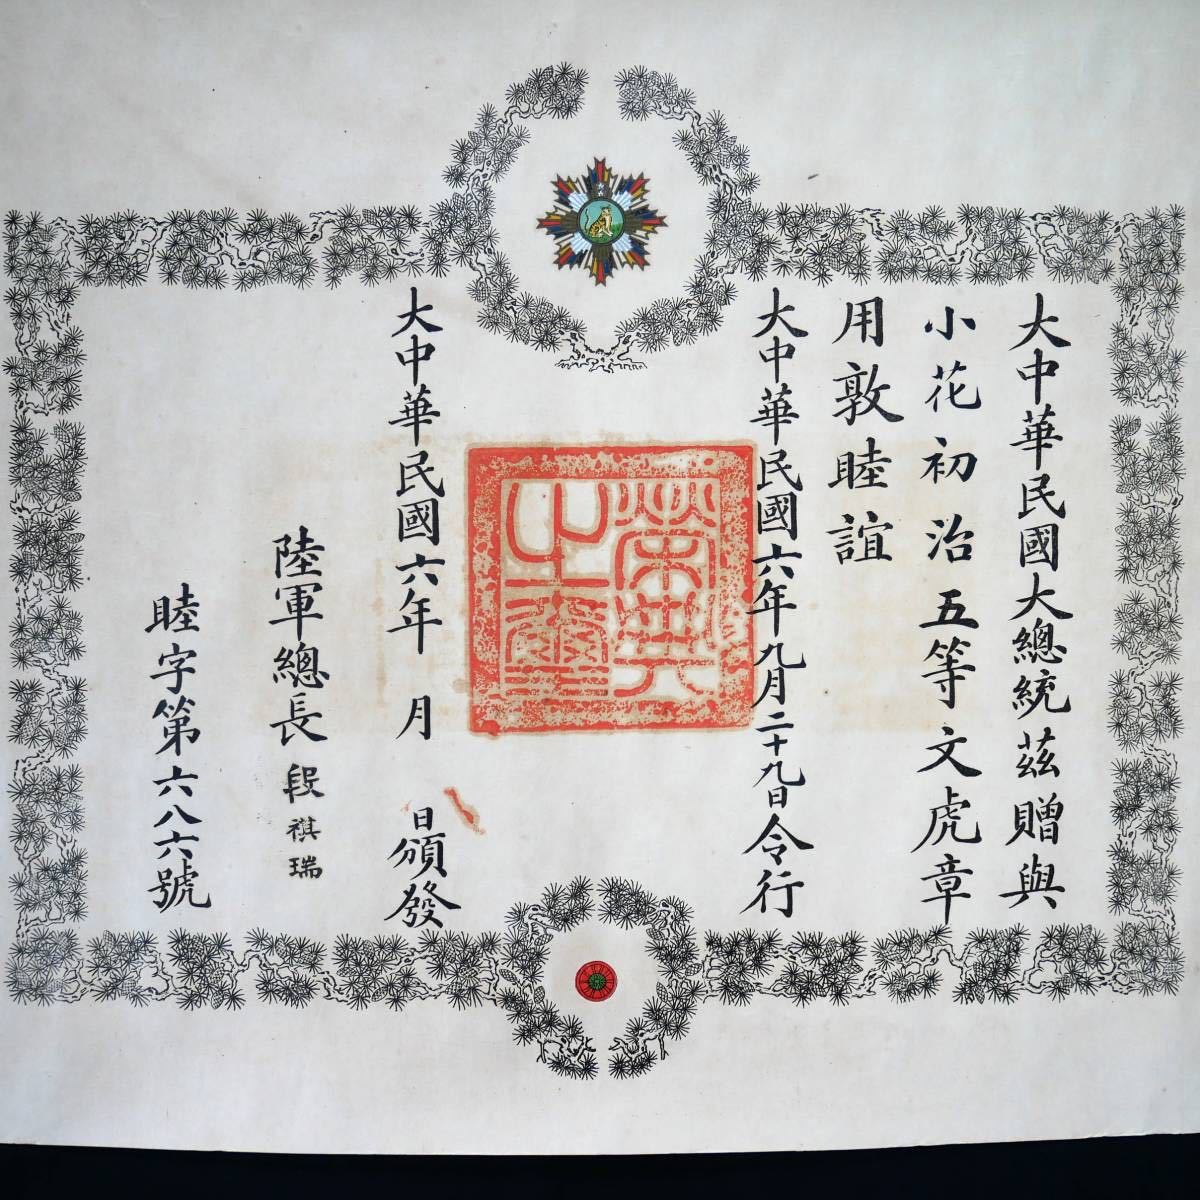 大中華民國大總統茲贈與
小花初治五等文虎章
用敦睦誼
大中華民國六年九月二十九日令行
榮典之璽
大中華民國六年 月 日頒發
陸軍總長 段祺瑞
睦字第六八六號